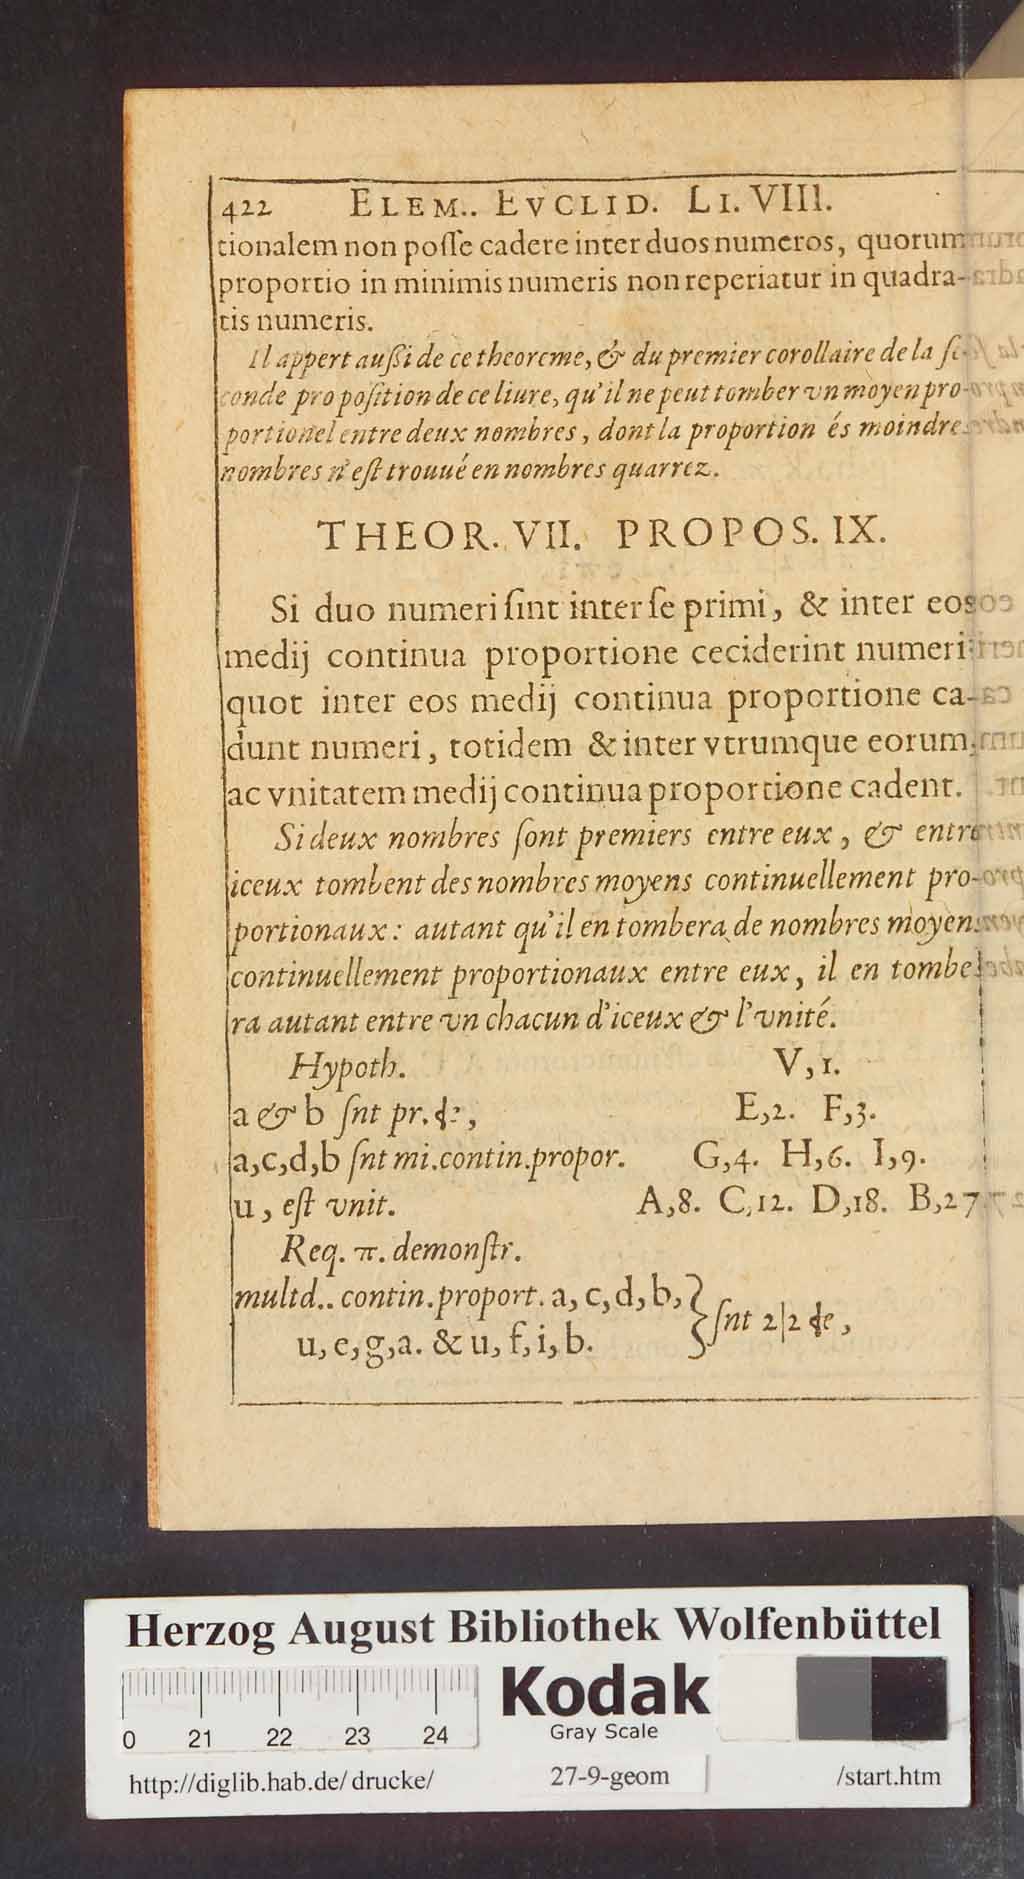 422 ELEM.. EVCLID. LI. VIII.
tionalem non posſe cadere inter duos numeros, quorum
proportio in minimis numeris non reperiatur in quadra-
tis numeris.
Il appert außi de ce theoreme, & du premier corollaire de la ſe-
conde propoſition de ce liure, qu'il ne peut tomber vn moyen pro-
portionel entre deux nombres, dont la proportion és moindres
nombres n'eſt trouué en nombres quarrez.
THEOR. VII. PROPOS. IX.
Si duo numeri ſint inter ſe primi, & inter eos
medij continua proportione ceciderint numeri:
quot inter eos medij continua proportione ca-
dunt numeri, totidem & inter vtrumque eorum,
ac vnitatem medij continua proportione cadent.
Si deux nombres ſont premiers entre eux, & entre
iceux tombent des nombres moyens continuellement pro-
portionaux: autant qu'il en tombera de nombres moyens
continuellement proportionaux entre eux, il en tombe-
ra autant entre vn chacun d'iceux & l'vnité.
Hypoth. V,1.
a & b ſnt pr. E,2. F,3.
a,c,d,b ſnt mi.contin.propor. G,4. H,6. I,9.
u, eſt vnit. A,8. C,12. D,18. B,27
Req. π. demonſtr.
multd.. contin.proport. a, c, d, b,
u, e, g, a. & u, f, i, b. } ſnt 2|2
Herzog August Bibliothek Wolfenbüttel
0 21 22 23 24
Kodak
Gray Scale
http://diglib.hab.de/drucke/ 27-9-geom /start.htm